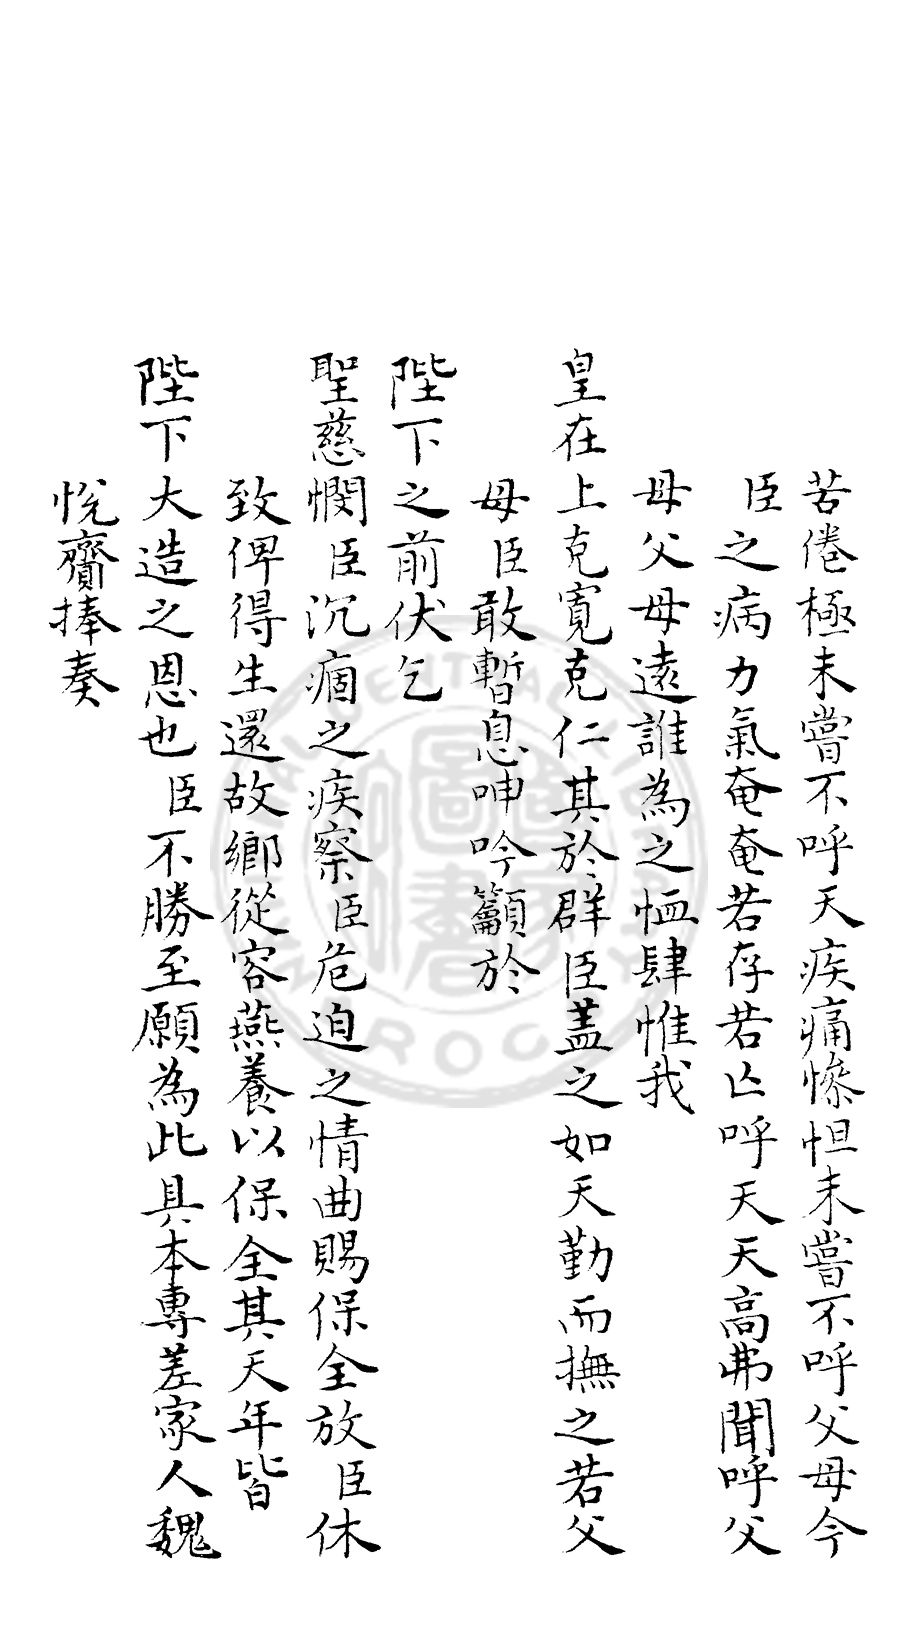 苦倦極未嘗不呼天疾痛慘怛未嘗不呼父母今
臣之病力氣奄奄若存若亡呼天天高弗聞呼父
母父母遠誰為之恤肆惟我
皇在上克寬克仁其於群臣蓋之如天勤而撫之若父
母臣敢暫息呻吟籲於
陛下之前伏乞
聖慈憫臣沉痼之疾察臣危迫之情曲賜保全放臣休
致俾得生還故鄉從容燕養以保全其天年皆
陛下大造之恩也臣不勝至願為此具本專差家人魏
悅齎捧奏